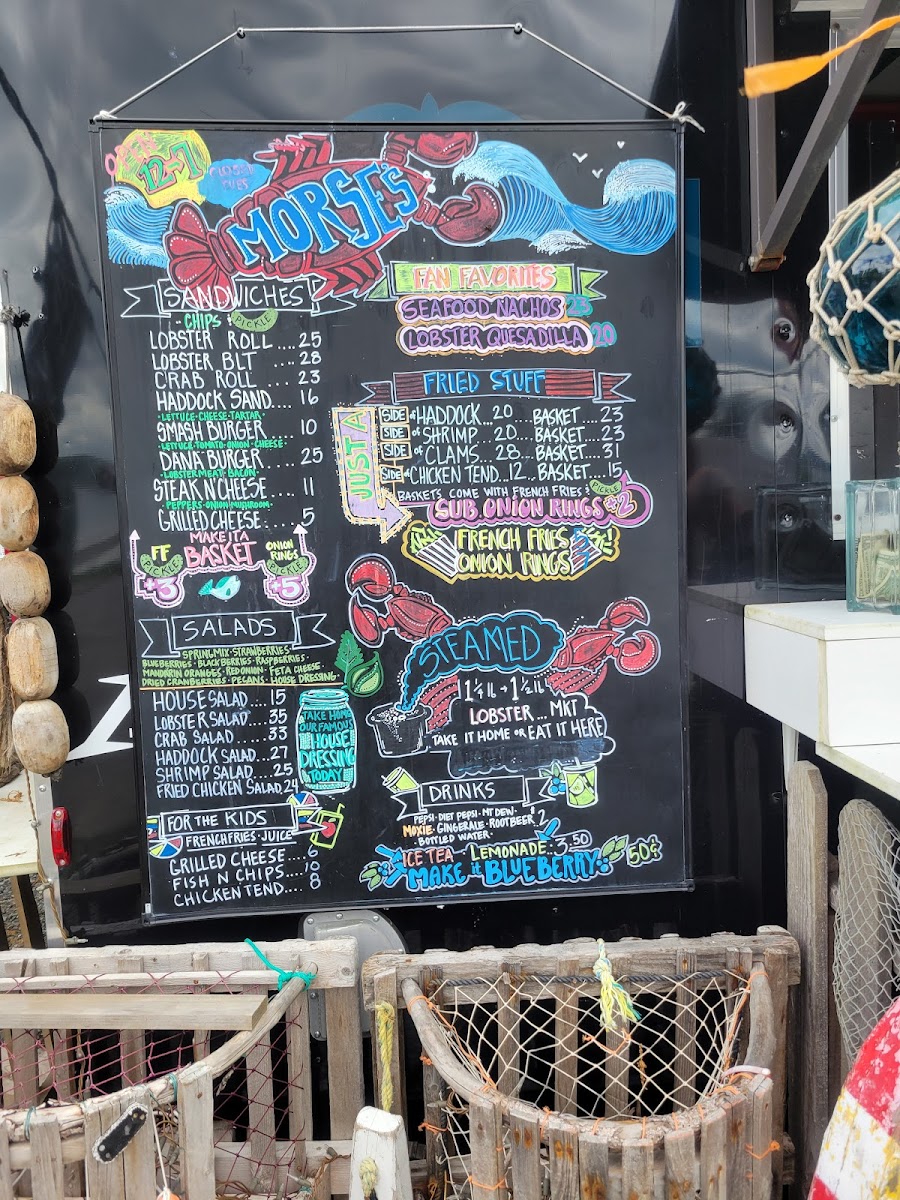 OPEN
12-7
CLOSED
TUES
MORSE'S
SANDWICHES
CHIPS PICKLE
LOBSTER ROLL .... 25
LOBSTER BLT .... 28
CRAB ROLL .... 23
HADDOCK SAND.... 16
LETTUCE·CHEESE·TARTAR
SMASH BURGER 10
LETTUCE·TOMATO·ONION·CHEESE
DANA BURGER.... 25
LOBSTER MEAT·BACON
STEAK N' CHEESE .... 11
PEPPERS·ONION·MUSHROOM
GRILLED CHEESE .... 5
MAKE IT A
BASKET
FF
PICKLE
+3
ONION
RINGS
PICKLE
+5
SALADS
SPRING MIX·STRAWBERRIES·
BLUEBERRIES·BLACKBERRIES·RASPBERRIES·
MANDARIN ORANGES·RED ONION·FETA CHEESE·
DRIED CRANBERRIES·PECANS·HOUSE DRESSING·
HOUSE SALAD .... 15
LOBSTER SALAD 35
CRAB SALAD .... 33
HADDOCK SALAD ... 27
SHRIMP SALAD .... 25
FRIED CHICKEN SALAD. 24
TAKE HOME
OUR FAMOUS
HOUSE
DRESSING
TODAY
FOR THE KIDS
FRENCH FRIES·JUICE
GRILLED CHEESE .... 6
FISH N CHIPS .... 10
CHICKEN TEND.... 8
FAN FAVORITES
SEAFOOD NACHOS 23
LOBSTER QUESADILLA 20
FRIED STUFF
JUST A
SIDE of HADDOCK . 20 BASKET .... 23
SIDE of SHRIMP ... 20 BASKET .... 23
SIDE of CLAMS ... 28 BASKET .... 31
SIDE of CHICKEN TEND .. 12 BASKET .... 15
BASKETS COME WITH FRENCH FRIES & PICKLE
SUB ONION RINGS +2
FRENCH FRIES
ONION RINGS
STEAMED
LOBSTER ... MKT
TAKE IT HOME OR EAT IT HERE
DRINKS
PEPSI·DIET PEPSI·MT DEW·
MOXIE·GINGERALE·ROOTBEER 2
·BOTTLED WATER·
ICE TEA LEMONADE 3.50
MAKE it BLUEBERRY 50¢